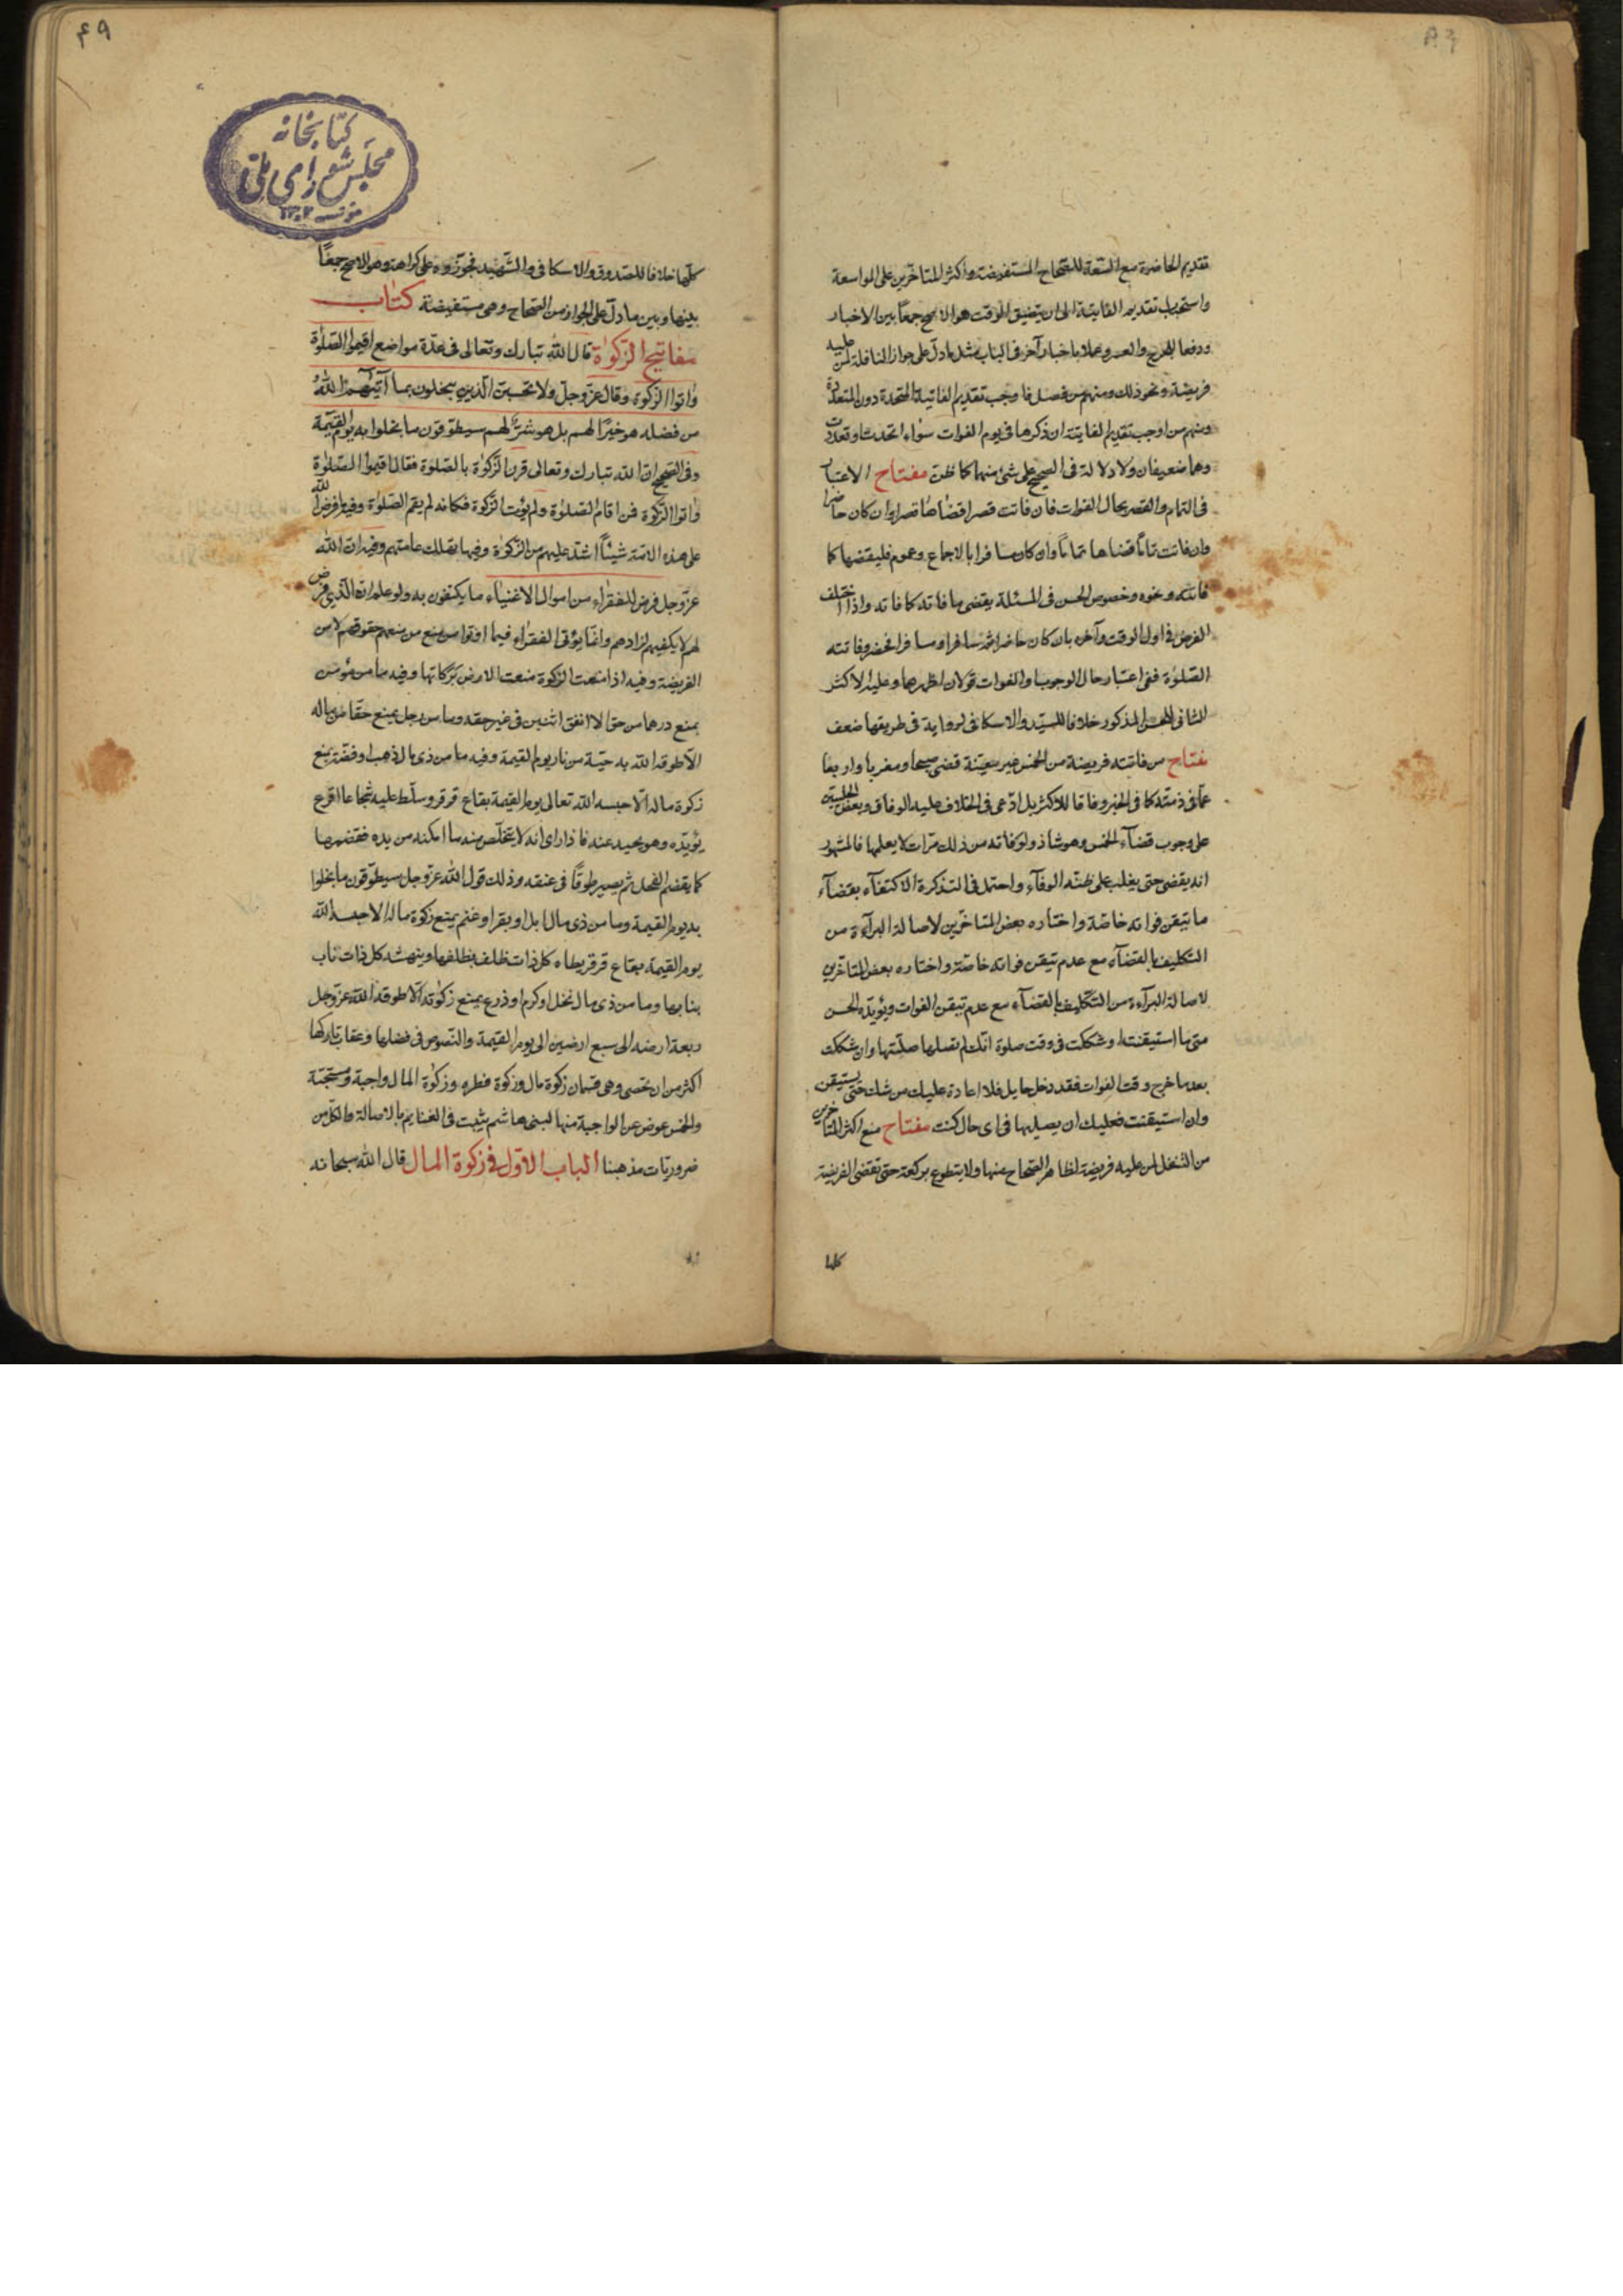 تقديم الحاضرة مع السّعة للصّحاح المستفيضة واكثر المتاخّرين على المواسعة
واستحباب تقديم الفايتة الى ان يتضيق الوقت هو الاصح جمعاً بين الاخبار
ودفعا للحرج والعسر وعملا باخبار آخر فى الباب مثل ما دلّ على جواز النافلة لمن عليه
فريضة ونحو ذلك ومنهم من فصل فاوجب تقديم الفايتة المتحدة دون المتعدّدة
ومنهم من اوجب تقديم الفايتة ان ذكرها فى يوم الفوات سواء اتحدت او تعدّدت
وهما ضعيفان ولا دلالة فى الصحيح على شئ منهما كما ظنّ مفتاح الاعتبار
فى التمام والقصر بحال الفوات فان فاتت قصرا قضاها قصرا وان كان حاضرا
وان فاتت تماماً قضاها تماماً وان كان مسافرا بالاجماع وعموم فليقضها كما
فاتته ونحوه وخصوص الحسن فى المسئلة يقضى ما فاته كما فاته واذا اختلف
الفرض فى اول الوقت وآخره بان كان حاضرا ثمّ سافر او مسافرا فحضر وفاتته
الصّلوٰة ففى اعتبار حال الوجوب او الفوات قولان اظهرهما وعليه الاكثر
الثانى للحسن المذكور خلافا للسيّد والاسكافى لرواية فى طريقها ضعف
مفتاح من فاتته فريضة من الخمس غير معيّنة قضى صبحا ومغربا واربعا
عمّا فى ذمّته كما فى الخبر وفاقا للاكثر بل ادّعى فى الخلاف عليه الوفاق وبعض الحلبيّين
على وجوب قضاء الخمس وهو شاذ ولو فاته من ذلك مرّات لا يعلمها فالمشهور
انه يقضى حتى يغلب على ظنّه الوفآء واحتمل فى التذكرة الاكتفآء بقضآء
ما تيقن فواته خاصّة واختاره بعض المتاخّرين لاصالة البرآءة من
التكليف بالقضآء مع عدم تيقن فواته خاصّة واختاره بعض المتاخّرين
لاصالة البرآءة من التكليف بالقضآء مع عدم تيقن الفوات ويؤيّده الحسن
متى ما استيقنت او شككت فى وقت صلوة انّك لم تصلها صلّيتها وان شككت
بعد ما خرج وقت الفوات فقد دخل حايل فلا اعادة عليك من شك حتى يستيقن
وان استيقنت فعليك ان يصليها فى اى حال كنت مفتاح منع اكثر المتاخرين
من التنفل لمن عليه فريضة لظاهر الصّحاح منها ولا يتطوع بركعة حتى تقضى الفريضة
كلها
۴۹
كتابخانه
مجلس شوراى ملّى
مؤسسه ١٣٠٢
كلّها خلافا للصّدوق والاسكافى والشّهيد فجوّزوه على كراهة وهو الاصح جمعاً
بينها وبين ما دلّ على الجواز من الصّحاح وهى مستفيضة كتاب
مفاتيح الزّكوٰة قال الله تبارك وتعالى فى عدّة مواضع اقيموا الصّلوٰة
وآتوا الزّكوة وقال عزّ وجلّ ولا تحسبنّ الّذين يبخلون بما آتيٰهم الله
من فضله هو خيرًا لهم بل هو شرٌّ لهم سيطوّقون ما بخلوا به يوم القيٰمة
وفى الصّحيح انّ الله تبارك وتعالى قرن الزّكوٰة بالصّلوٰة فقال اقيموا الصّلوٰة
وآتوا الزّكوة فمن اقام الصّلوٰة ولم يؤت الزّكوة فكانه لم يقم الصّلوٰة وفيه ما فرض الله
على هذه الامّة شيئاً اشدّ عليهم من الزّكوٰة وفيها تهلك عامتهم وفيه ان الله
عزّ وجل فرض للفقراء من اموال الاغنياء ما يكتفون به ولو علم ان الّذى فرض
لهم لا يكفيهم لزادهم وانّما يؤتى الفقراء فيما اوتوا من منع من منعهم حقوقهم لا من
الفريضة وفيه اذا منعت الزكوة منعت الارض بركاتها وفيه ما من مؤمن
يمنع درهما من حق الا انفق اثنين فى غير حقه وما من رجل يمنع حقا من ماله
الّا طوقه الله به حيّة من نار يوم القيمة وفيه ما من ذى مال ذهب او فضّة يمنع
زكوة ماله الّا حبسه الله تعالى يوم القيمة بقاع قرقر وسلّط عليه شجاعا اقرع
يؤيّده وهو يحيد عنه فاذا راى انه لا يتخلّص منه ما امكنه من يده فقضمها
كما يقضم الفحل ثم يصير طوقاً فى عنقه وذلك قول الله عزّ وجل سيطوّقون ما بخلوا
به يوم القيمة وما من ذى مال ابل او بقر او غنم يمنع زكوة ماله الا حبسه الله
يوم القيمة بقاع قرقر يطاه كل ذات ظلف بظلفها وينهشه كل ذات ناب
بنابها وما من ذى مال نخل او كرم او زرع يمنع زكوٰته الّا طوقه الله عزّ وجل
ربعة ارضه الى سبع ارضين الى يوم القيمة والنّصوص فى فضلها وعقاب تاركها
اكثر من ان تحصى وهى قسمان زكوة مال وزكوة فطره وزكوٰة المال واجبة ومستحبّة
والخمس عوض عن الواجبة منها لبنى هاشم يثبت فى الغنايم بالاصالة والكل من
ضروريّات مذهبنا الباب الاوّل فى زكوة المال قال الله سبحانه